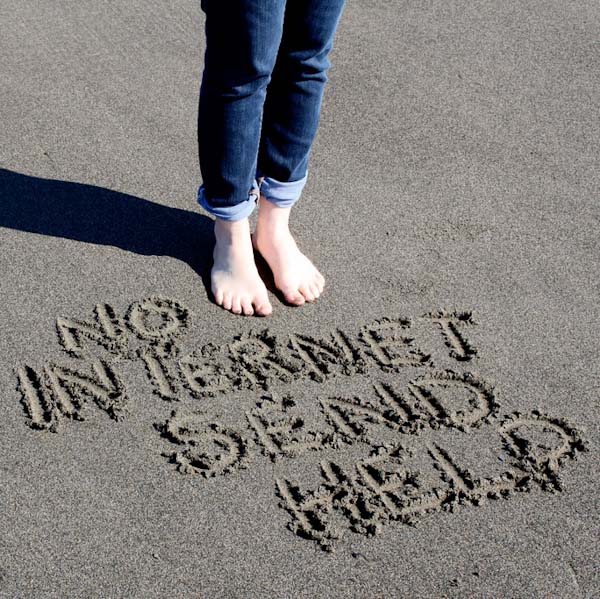 NO
INTERNET
SEND
HELP